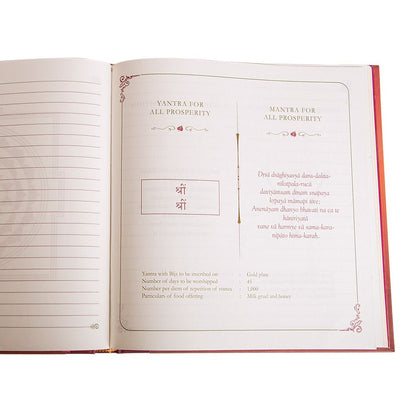 YANTRA FOR
ALL PROSPERITY
श्रीं
श्रीं
MANTRA FOR
ALL PROSPERITY
Dṛśā drāghīyasyā dara-dalita-
nīlotpala-rucā
davīyāṁsaṁ dīnaṁ snapaya
kṛpayā māmapi śive;
Anenāyaṁ dhanyo bhavati na ca te
hāniriyatā
vane vā harmye vā sama-kara-
nipāto hima-karaḥ.
Yantra with Bija to be inscribed on : Gold plate
Number of days to be worshipped : 45
Number per diem of repetition of mantra : 1,000
Particulars of food offering : Milk gruel and honey